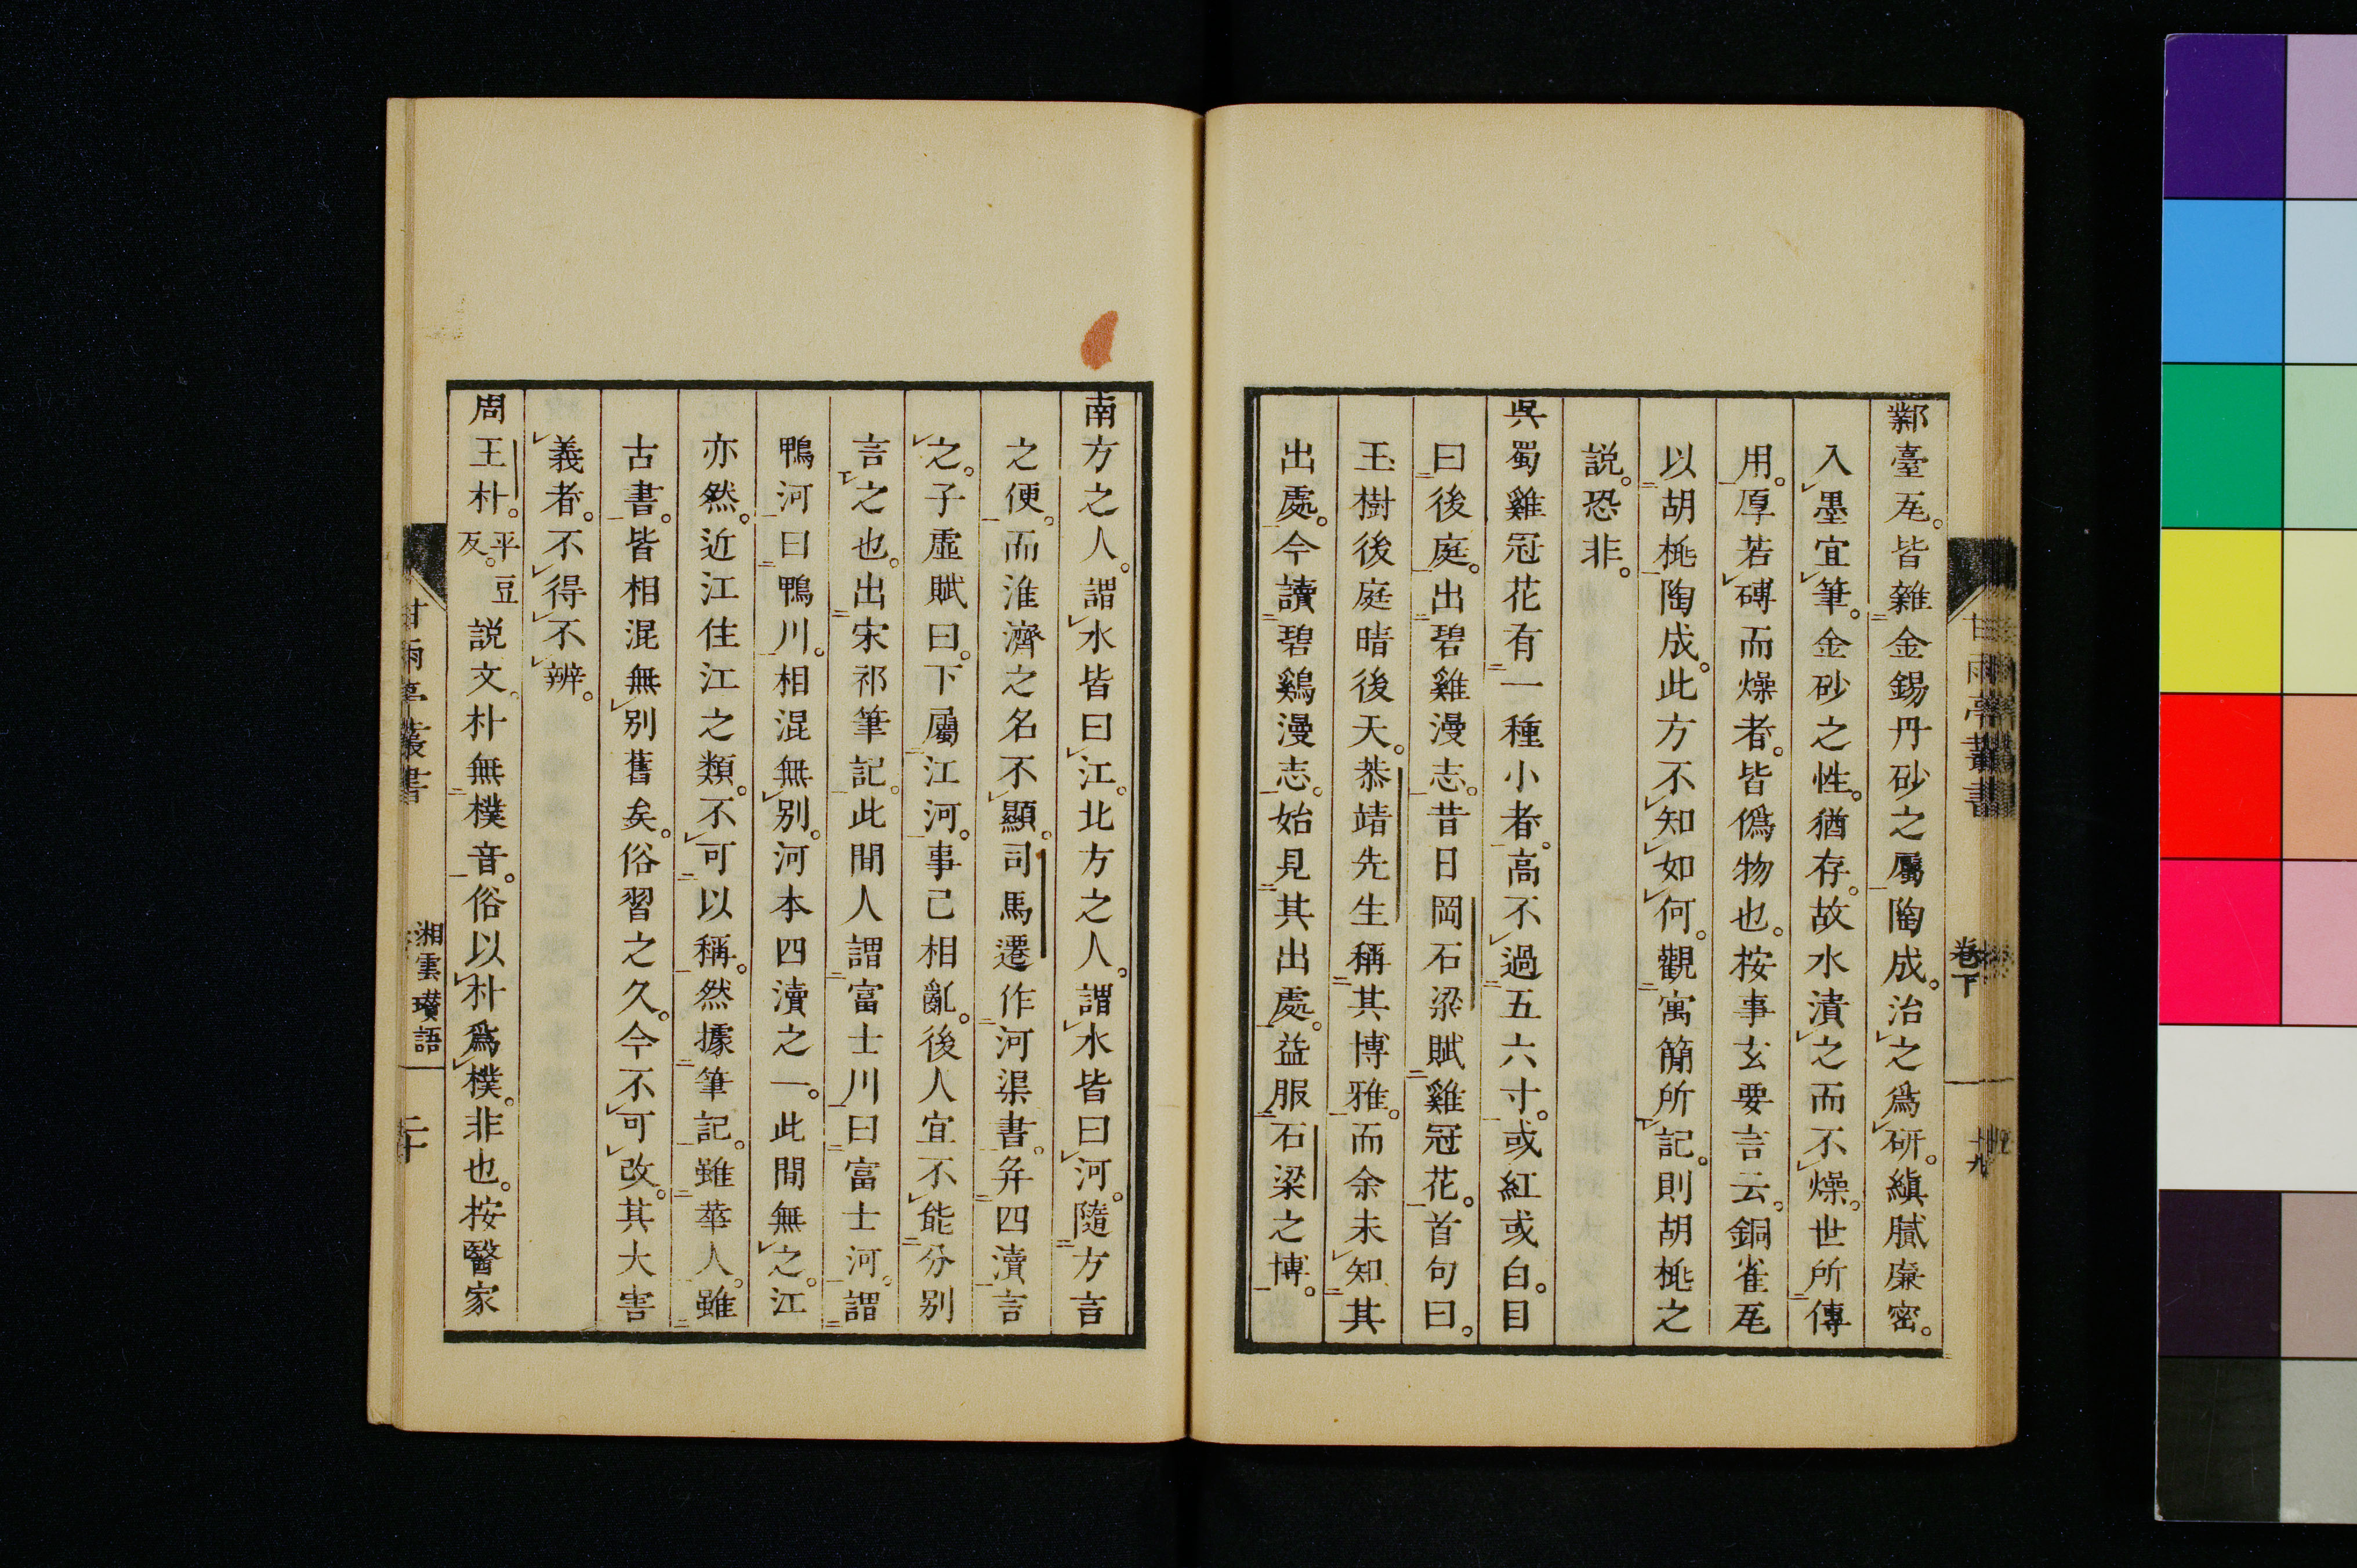 鄴臺瓦。皆雜金錫丹砂之屬陶成。治之爲研。縝膩廉密。
入墨宜筆。金砂之性。猶存。故水漬之而不燥。世所傳
用。厚若磚而燥者。皆僞物也。按事玄要言云。銅雀瓦
以胡桃陶成。此方不知如何。觀寓簡所記。則胡桃之
説。恐非。
呉蜀雞冠花有一種小者。高不過五六寸。或紅或白。目
曰後庭。出碧雞漫志。昔日岡石梁賦雞冠花。首句曰。
玉樹後庭暗後天。恭靖先生稱其博雅。而余未知其
出處。今讀碧鷄漫志。始見其出處。益服石梁之博。
甘雨亭叢書
卷下
十九
南方之人。謂水皆曰江。北方之人。謂水皆曰河。隨方言
之便。而淮濟之名不顯。司馬遷作河渠書。并四瀆言
之。子虛賦曰。下屬江河。事已相亂。後人宜不能分別
言之也。出宋祁筆記。此間人謂富士川曰富士河。謂
鴨河曰鴨川。相混無別。河本四瀆之一。此間無之。江
亦然。近江住江之類。不可以稱。然據筆記。雖華人。雖
古書。皆相混無別舊矣。俗習之久。今不可改。其大害
義者。不得不辨。
周王朴。平豆反。説文。朴無樸音。俗以朴爲樸。非也。按醫家
甘雨亭叢書
湘雲瓚語
二十